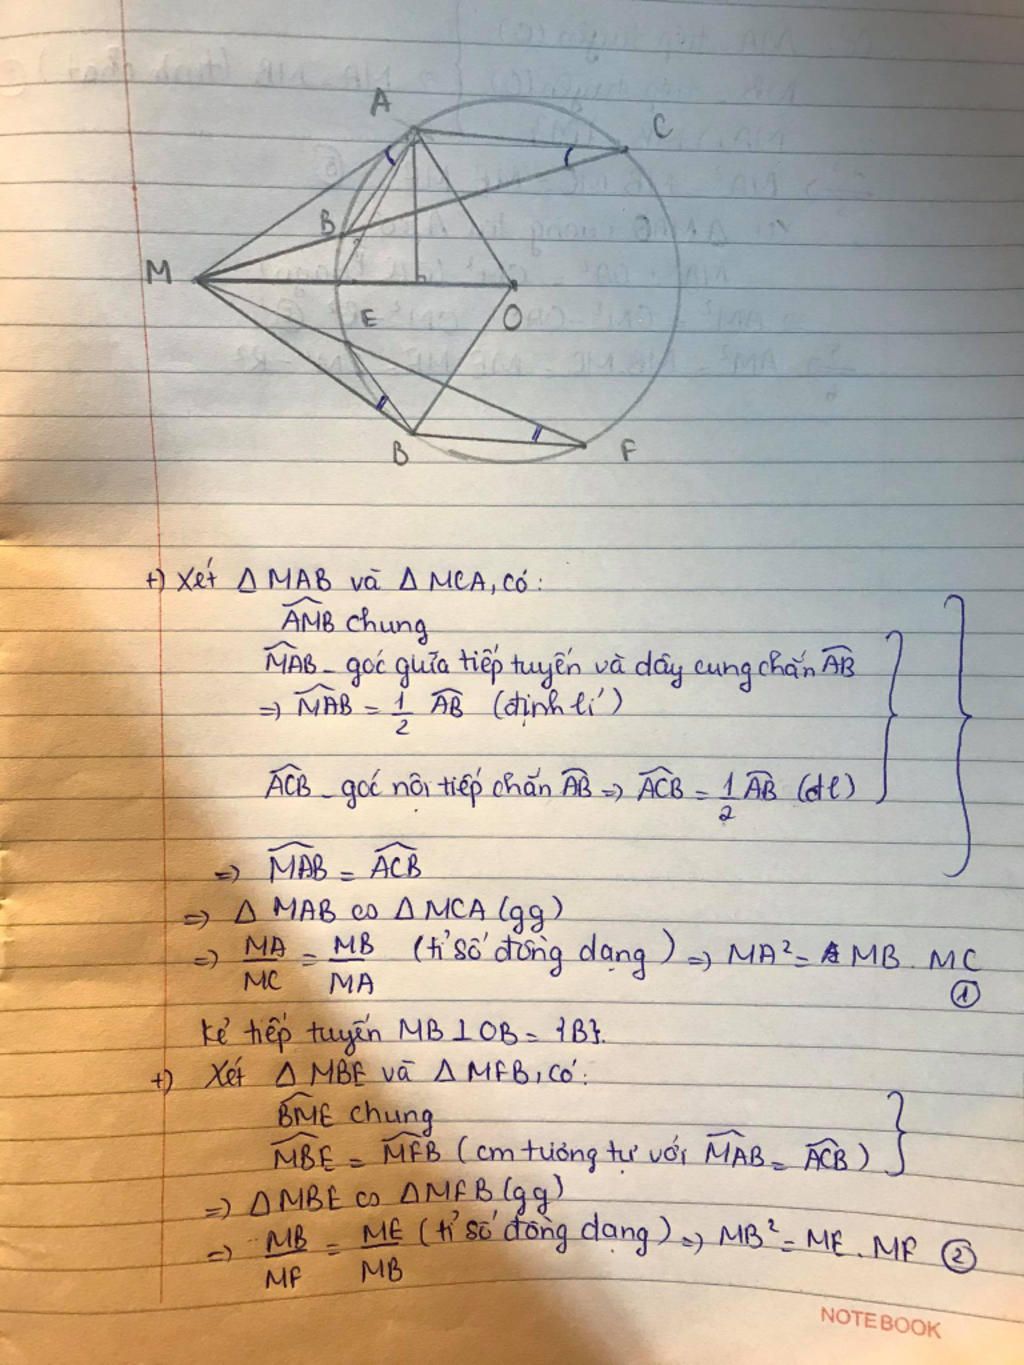 A
C
B
M
E
O
B
F
+) Xét Δ MAB và Δ MCA, có:
\widehat{AMB} chung
\widehat{MAB} - góc giữa tiếp tuyến và dây cung chắn \widehat{AB}
=> \widehat{MAB} = \frac{1}{2} \widehat{AB} (định lí)
\widehat{ACB} - góc nội tiếp chắn \widehat{AB} => \widehat{ACB} = \frac{1}{2} \widehat{AB} (đl)
=> \widehat{MAB} = \widehat{ACB}
=> Δ MAB ∽ Δ MCA (gg)
=> \frac{MA}{MC} = \frac{MB}{MA} (tỉ số đồng dạng) => MA² = MB . MC ①
Kẻ tiếp tuyến MB ⊥ OB = {B}.
+) Xét Δ MBE và Δ MFB, có:
\widehat{BME} chung
\widehat{MBE} = \widehat{MFB} (cm tương tự với \widehat{MAB} = \widehat{ACB})
=> ΔMBE ∽ ΔMFB (gg)
=> \frac{MB}{MF} = \frac{ME}{MB} (tỉ số đồng dạng) => MB² = ME . MF ②
NOTEBOOK